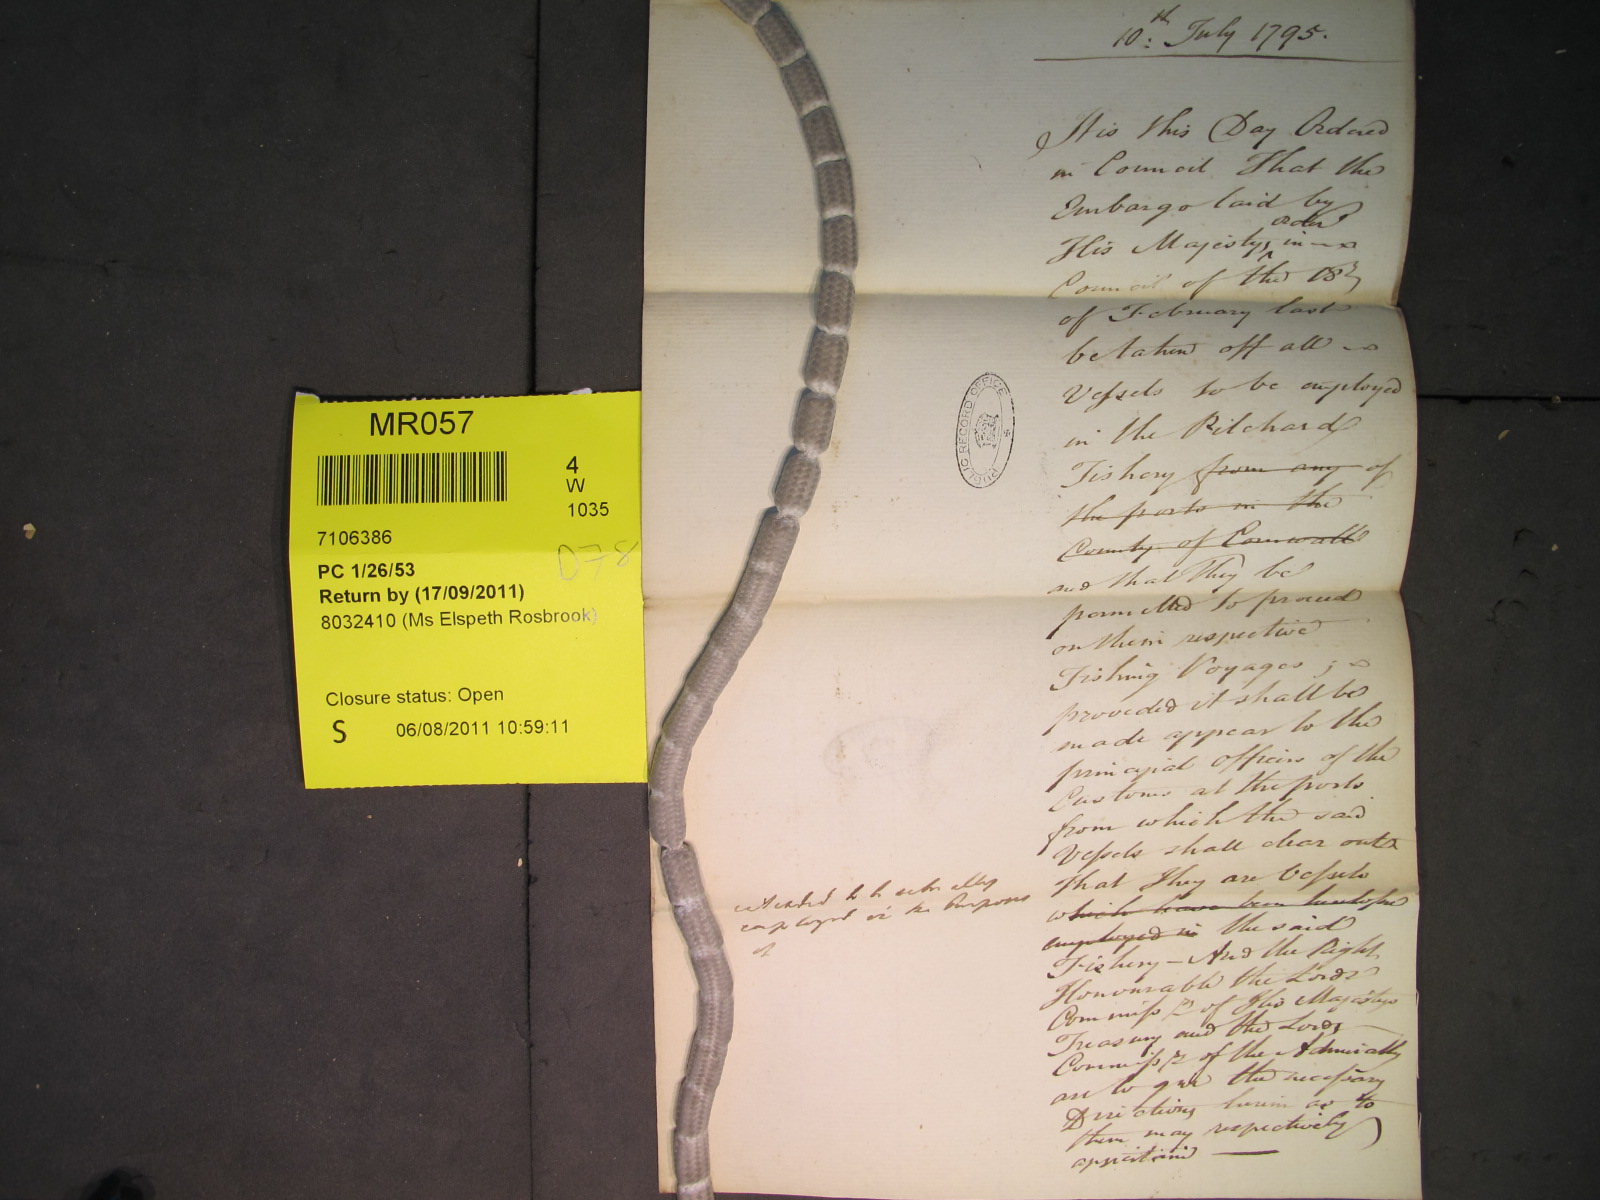 10:th July 1795.
It is this Day Ordered
in Council That the
Embargo laid by
order
His Majestys in
Council of the 18
of February last
be taken off all
Vessels to be employed
in the Pilchard
Fishery from any of
the ports in the
County of Cornwall
and that they be
permitted to proceed
on their respective
Fishing Voyages ;
provided it shall be
made appear to the
principal officers of the
Customs at the ports
from which the said
Vessels shall clear out
that they are Vessels
which have been heretofore
employed in the said
Fishery – And the Right
Honourable the Lords
Commissrs of His Majestys
Treasury and the Lords
Commissrs of the Admiralty
are to give the necessary
Directions herein as to
them may respectively
appertain
intended to be actually
employed in the purposes
of
PUBLIC RECORD OFFICE
MR057
4
W
1035
7106386
D78
PC 1/26/53
Return by (17/09/2011)
8032410 (Ms Elspeth Rosbrook)
Closure status: Open
S 06/08/2011 10:59:11